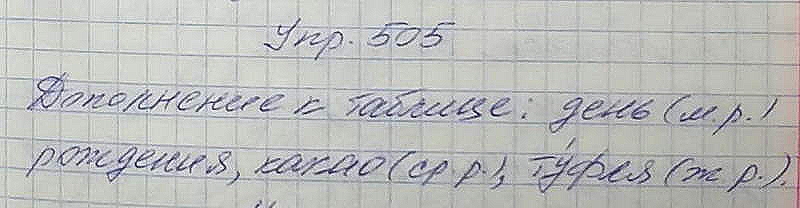 Упр. 505
Дополнение к таблице: день (м.р.)
рождения, какао (ср.р.), ту́фля (ж.р.).